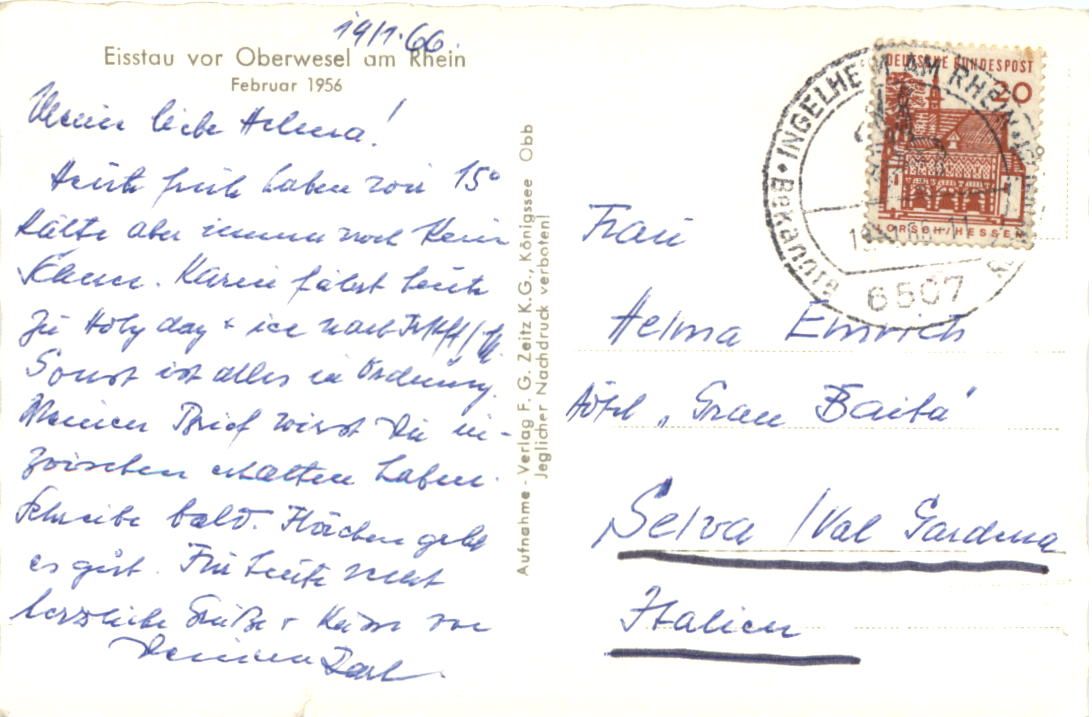 19/1.66
Eisstau vor Oberwesel am Rhein
Februar 1956
Meine liebe Helma!
Heute früh haben wir 15°
Kälte aber immer noch kein
Karin fährt heute
zu Holy day + ich nach
Sonst ist alles in Ordnung.
Meinen Brief wirst Du in-
zwischen erhalten haben.
Schreibe bald. geht
es gut. Für heute recht
herzliche Grüße + Küsse von
Deinem
Aufnahme - Verlag F. G. Zeitz K.G., Königssee Obb
Jeglicher Nachdruck verboten!
DEUTSCHE BUNDESPOST
20
LORSCH/HESSEN
INGELHEIM AM RHEIN
Bekannte
6507
Frau
Helma Emrich
Hotel „Gran Baita"
Selva /Val Gardena
Italien